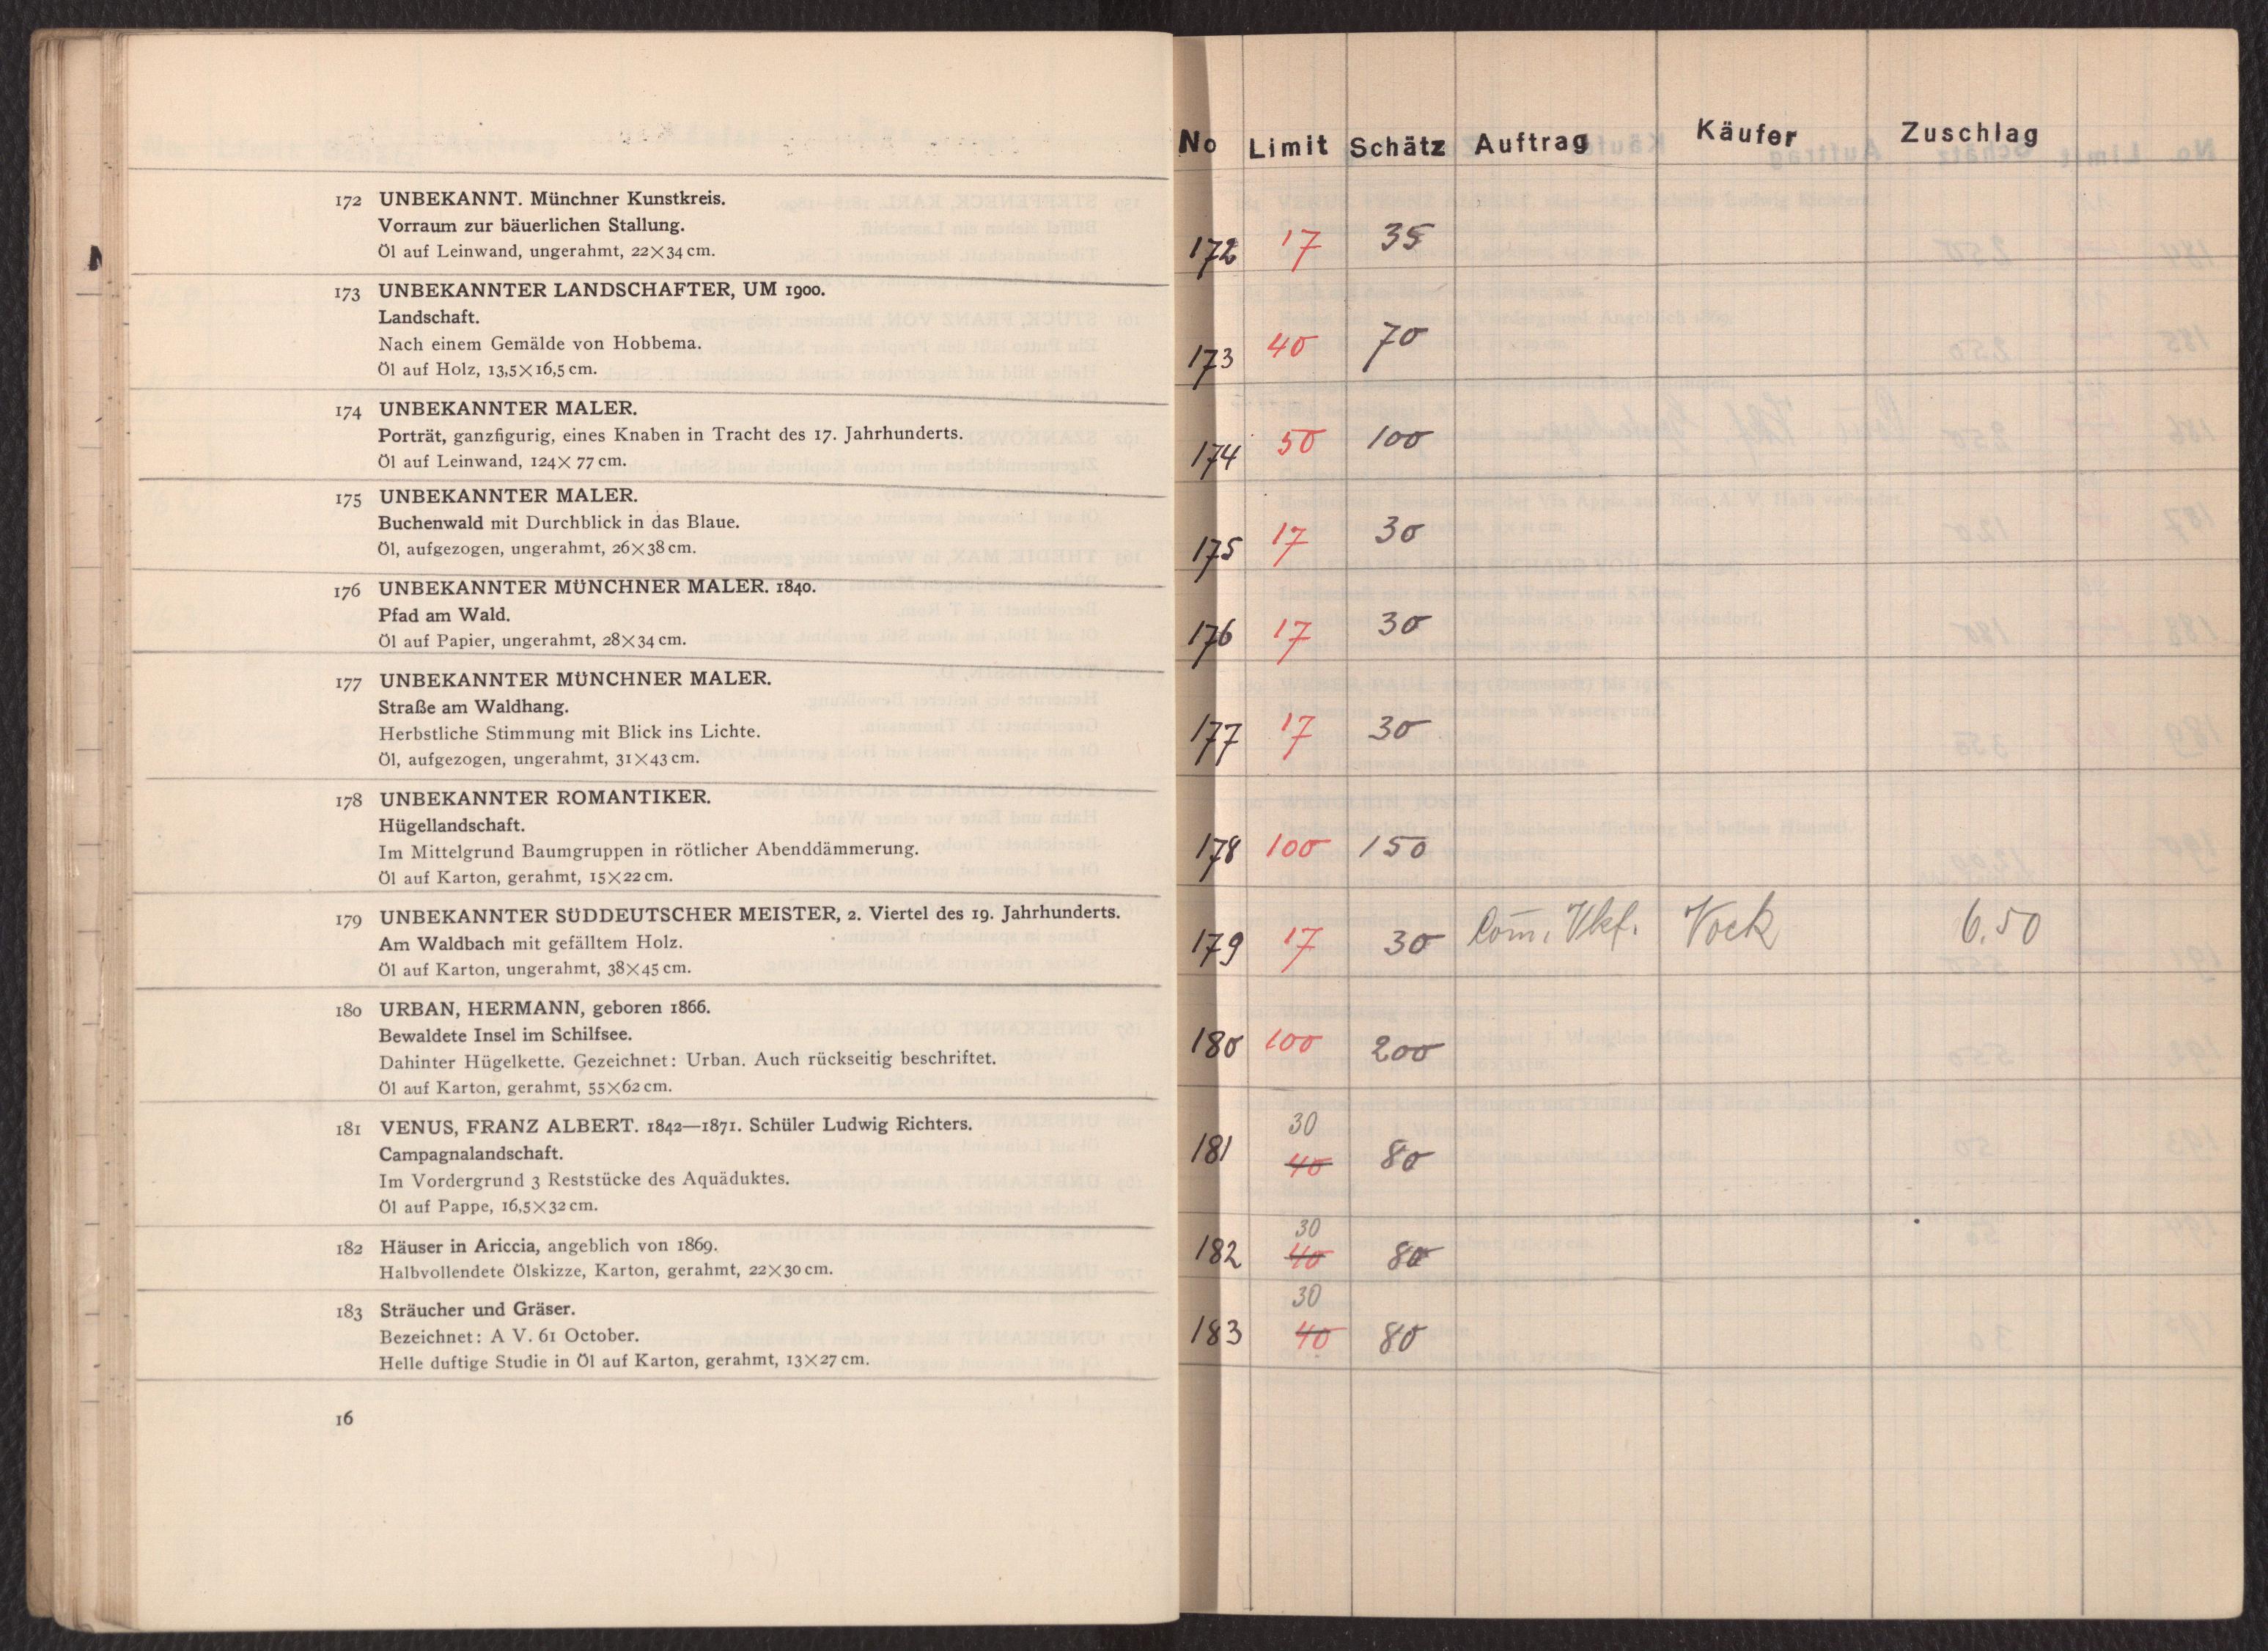 172 UNBEKANNT. Münchner Kunstkreis.
Vorraum zur bäuerlichen Stallung.
Öl auf Leinwand, ungerahmt, 22×34 cm.
173 UNBEKANNTER LANDSCHAFTER, UM 1900.
Landschaft.
Nach einem Gemälde von Hobbema.
Öl auf Holz, 13,5×16,5 cm.
174 UNBEKANNTER MALER.
Porträt, ganzfigurig, eines Knaben in Tracht des 17. Jahrhunderts.
Öl auf Leinwand, 124×77 cm.
175 UNBEKANNTER MALER.
Buchenwald mit Durchblick in das Blaue.
Öl, aufgezogen, ungerahmt, 26×38 cm.
176 UNBEKANNTER MÜNCHNER MALER. 1840.
Pfad am Wald.
Öl auf Papier, ungerahmt, 28×34 cm.
177 UNBEKANNTER MÜNCHNER MALER.
Straße am Waldhang.
Herbstliche Stimmung mit Blick ins Lichte.
Öl, aufgezogen, ungerahmt, 31×43 cm.
178 UNBEKANNTER ROMANTIKER.
Hügellandschaft.
Im Mittelgrund Baumgruppen in rötlicher Abenddämmerung.
Öl auf Karton, gerahmt, 15×22 cm.
179 UNBEKANNTER SÜDDEUTSCHER MEISTER, 2. Viertel des 19. Jahrhunderts.
Am Waldbach mit gefälltem Holz.
Öl auf Karton, ungerahmt, 38×45 cm.
180 URBAN, HERMANN, geboren 1866.
Bewaldete Insel im Schilfsee.
Dahinter Hügelkette. Gezeichnet: Urban. Auch rückseitig beschriftet.
Öl auf Karton, gerahmt, 55×62 cm.
181 VENUS, FRANZ ALBERT. 1842—1871. Schüler Ludwig Richters.
Campagnalandschaft.
Im Vordergrund 3 Reststücke des Aquäduktes.
Öl auf Pappe, 16,5×32 cm.
182 Häuser in Ariccia, angeblich von 1869.
Halbvollendete Ölskizze, Karton, gerahmt, 22×30 cm.
183 Sträucher und Gräser.
Bezeichnet: A V. 61 October.
Helle duftige Studie in Öl auf Karton, gerahmt, 13×27 cm.
16
No Limit Schätz Auftrag Käufer Zuschlag
172 17 35
173 40 70
174 50 100
175 17 30
176 17 30
177 17 30
178 100 150
179 17 30 Com. Vkf. Vock 6.50
180 100 200
30
181 40 80
30
182 40 80
30
183 40 80